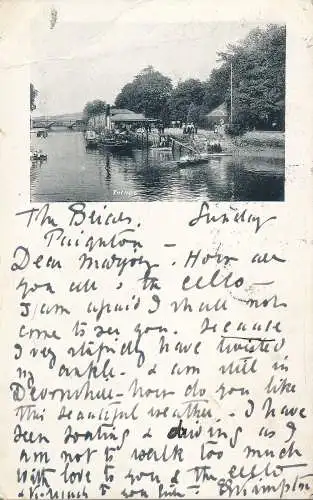 Totnes
The Briars, Sunday
Paignton —
Dear Marjory — How are
you all, & the cello —
I am afraid I shall not
come to see you. Because
I very stupidly have twisted
my ankle. I am still in
Devonshire — how do you like
this beautiful weather. — I have
been boating & driving as I
am not to walk too much
With love to you & the cello